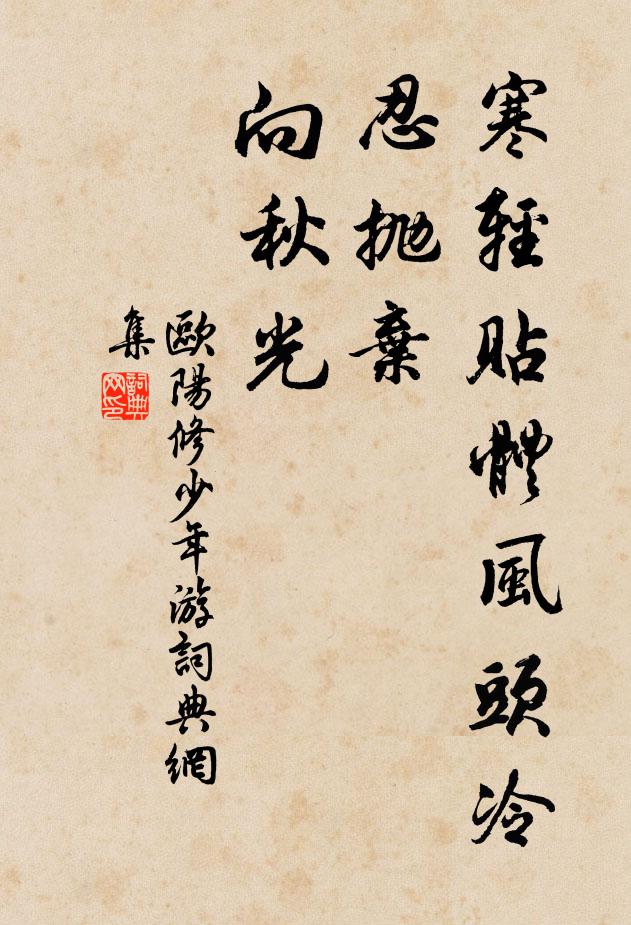 寒輕貼體風頭冷
忍抛棄
向秋光
歐陽修少年游詞典網
集
詞典
网印